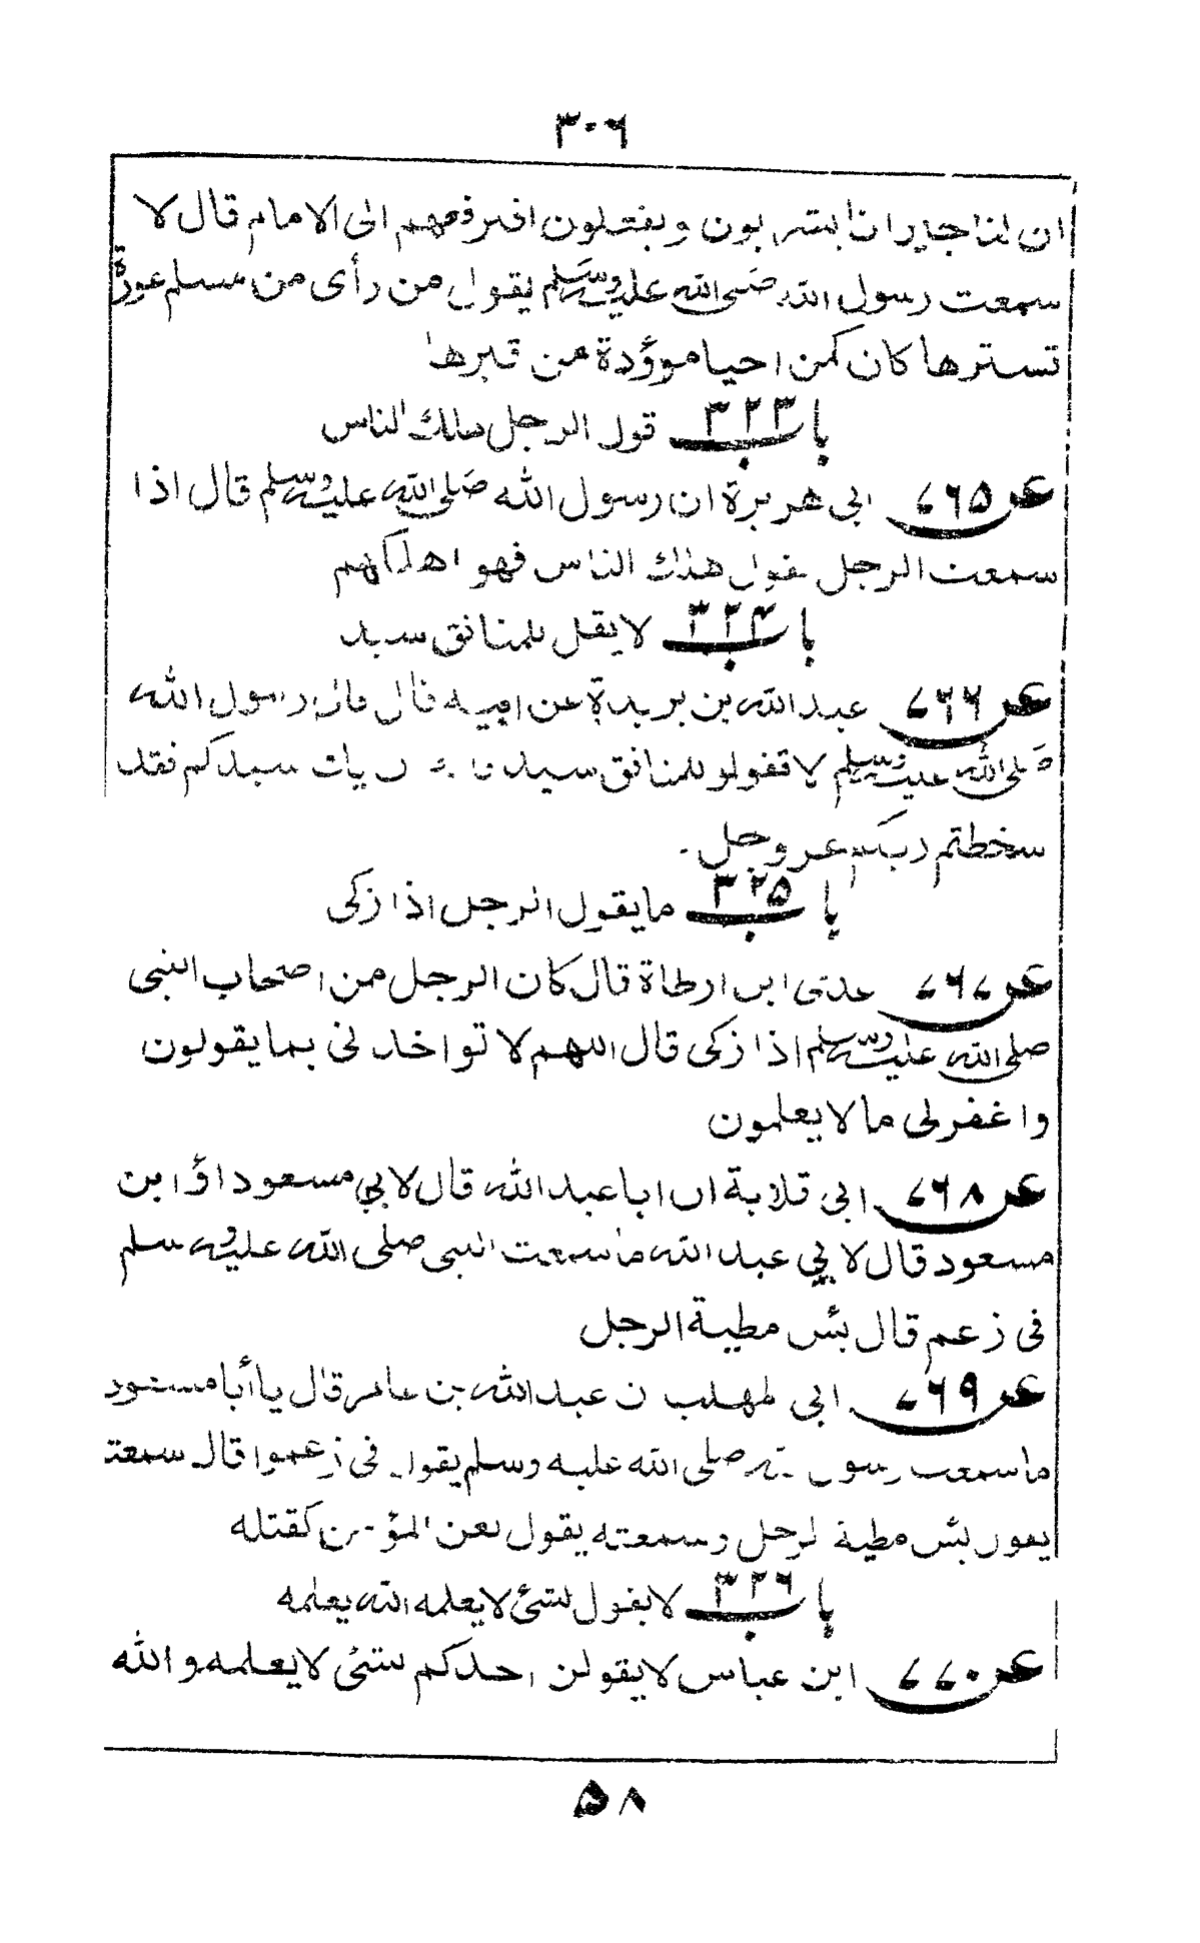 ٣٠٦
ان لنا جيرانا يشربون ويفعلون افنرفعهم الى الامام قال لا
سمعت رسول الله صَلى الله عليه وسَلم يقول من رأى من مسلم عورة
تسترها كان كمن احيا موؤدة من قبرها
باب ٣٢٣ قول الرجل هلك الناس
عن ٧٦٥ ابى هريرة ان رسول الله صَلى الله عليه وسلم قال اذا
سمعت الرجل يقول هلك الناس فهو اهلكهم
باب ٣٢٤ لا يقل للمنافق سيد
عن ٧٦٦ عبد الله بن بريدة عن ابيه قال قال رسول الله
صَلى الله عليه وسلم لا تقولو للمنافق سيد يك سيدكم فقد
سخطتم ربكم عز وجل -
باب ٣٢٥ ما يقول الرجل اذا زكى
عن ٧٦٧ عدى ابن ارطاة قال كان الرجل من اصحاب النبى
صلى الله عليه وسلم اذا زكى قال اللهم لا تواخذنى بما يقولون
واغفرلى ما لا يعلمون
عن ٧٦٨ ابى قلابة ان ابا عبد الله قال لابي مسعود اؤ ابن
مسعود قال لابي عبد الله ما سمعت النبى صلى الله عليه وسلم
فى زعم قال بئس مطية الرجل
عن ٧٦٩ ابى لمهلب ن عبد الله بن عامر قال يا أبا مسعود
ما سمعت رسول الله صلى الله عليه وسلم يقول فى زعموا قال سمعته
يقول بئس مطية لرجل وسمعته يقول لعن المؤمن كقتله
باب ٣٢٦ لا يقول لشئ لا يعلمه الله يعلمه
عن ٧٧٠ ابن عباس لا يقولن احدكم لشئ لا يعلمه والله
٥٨